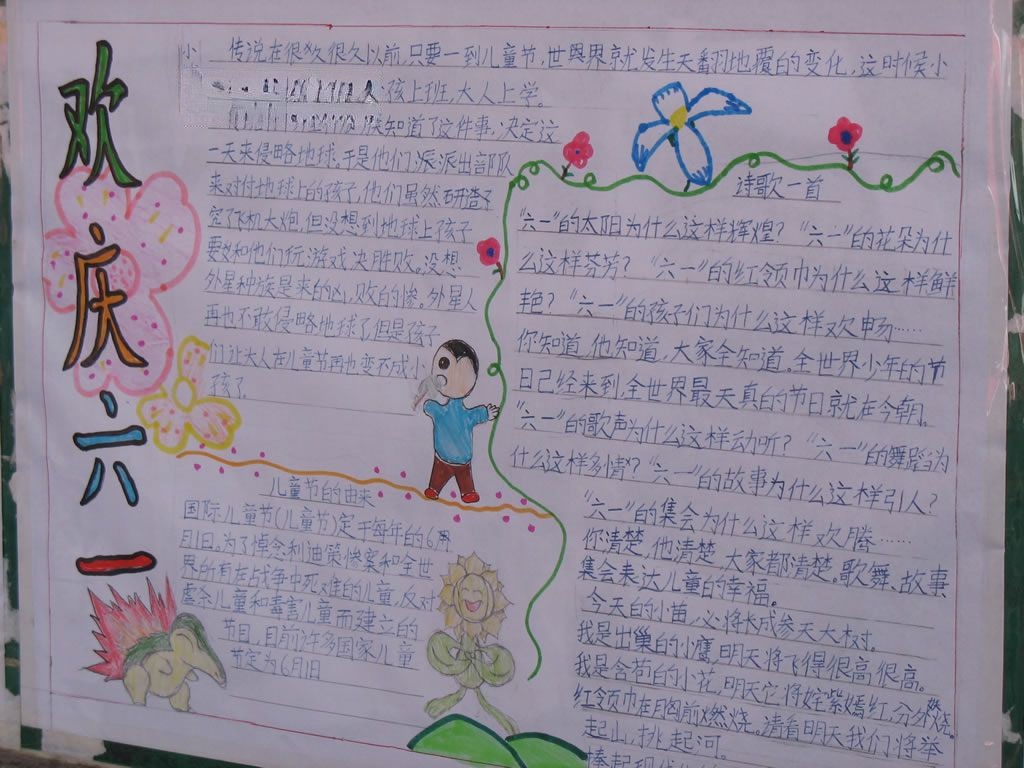 欢庆六一
小 传说在很久很久以前,只要一到儿童节,世界界就发生天翻地覆的变化,这时候小
孩上班,大人上学。
知道了这件事,决定这
一天来侵略地球。于是他们派派出部队
来对付地球上的孩子,他们虽然研造了
空了飞机大炮,但没想到地球上孩子
要约和他们玩游戏决胜败。没想
外星种族是来的凶,败的惨。外星人
再也不敢侵略地球了但是孩子
们让大人在儿童节再也变不成小
孩了
儿童节的由来
国际儿童节(儿童节)定于每年的6月
月1日。为了悼念利迪策惨案和全世
界所有在战争中死难的儿童,反对
虐杀儿童和毒害儿童而建立的
节目,目前许多国家儿童
节定为6月1日
诗歌一首
“六一”的太阳为什么这样辉煌?“六一”的花朵为什
么这样芬芳?“六一”的红领巾为什么这样鲜
艳?“六一”的孩子们为什么这样欢畅……
你知道,他知道,大家全知道。全世界少年的节
日己经来到,全世界最天真的节日就在今朝。
“六一”的歌声为什么这样动听?“六一”的舞蹈为
什么这样多情?“六一”的故事为什么这样引人?
“六一”的集会为什么这样欢腾……
你清楚,他清楚,大家都清楚。歌舞、故事
集会表达儿童的幸福。
今天的小苗,必将长成参天大树。
我是出巢的小鹰,明天将飞得很高很高。
我是含苞的小花,明天它将姹紫嫣红,分外娆。
红领巾在胸前燃烧。请看明天我们将举
起山,挑起河。
捧起现代